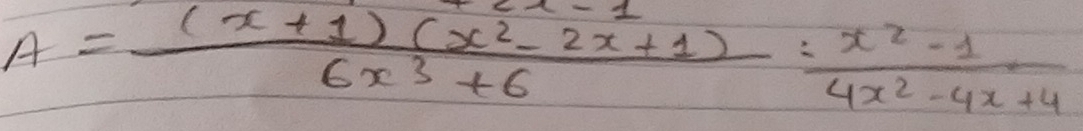 A = (x + 1) (x² - 2x + 1) / 6x³ + 6 : x² - 1 / 4x² - 4x + 4